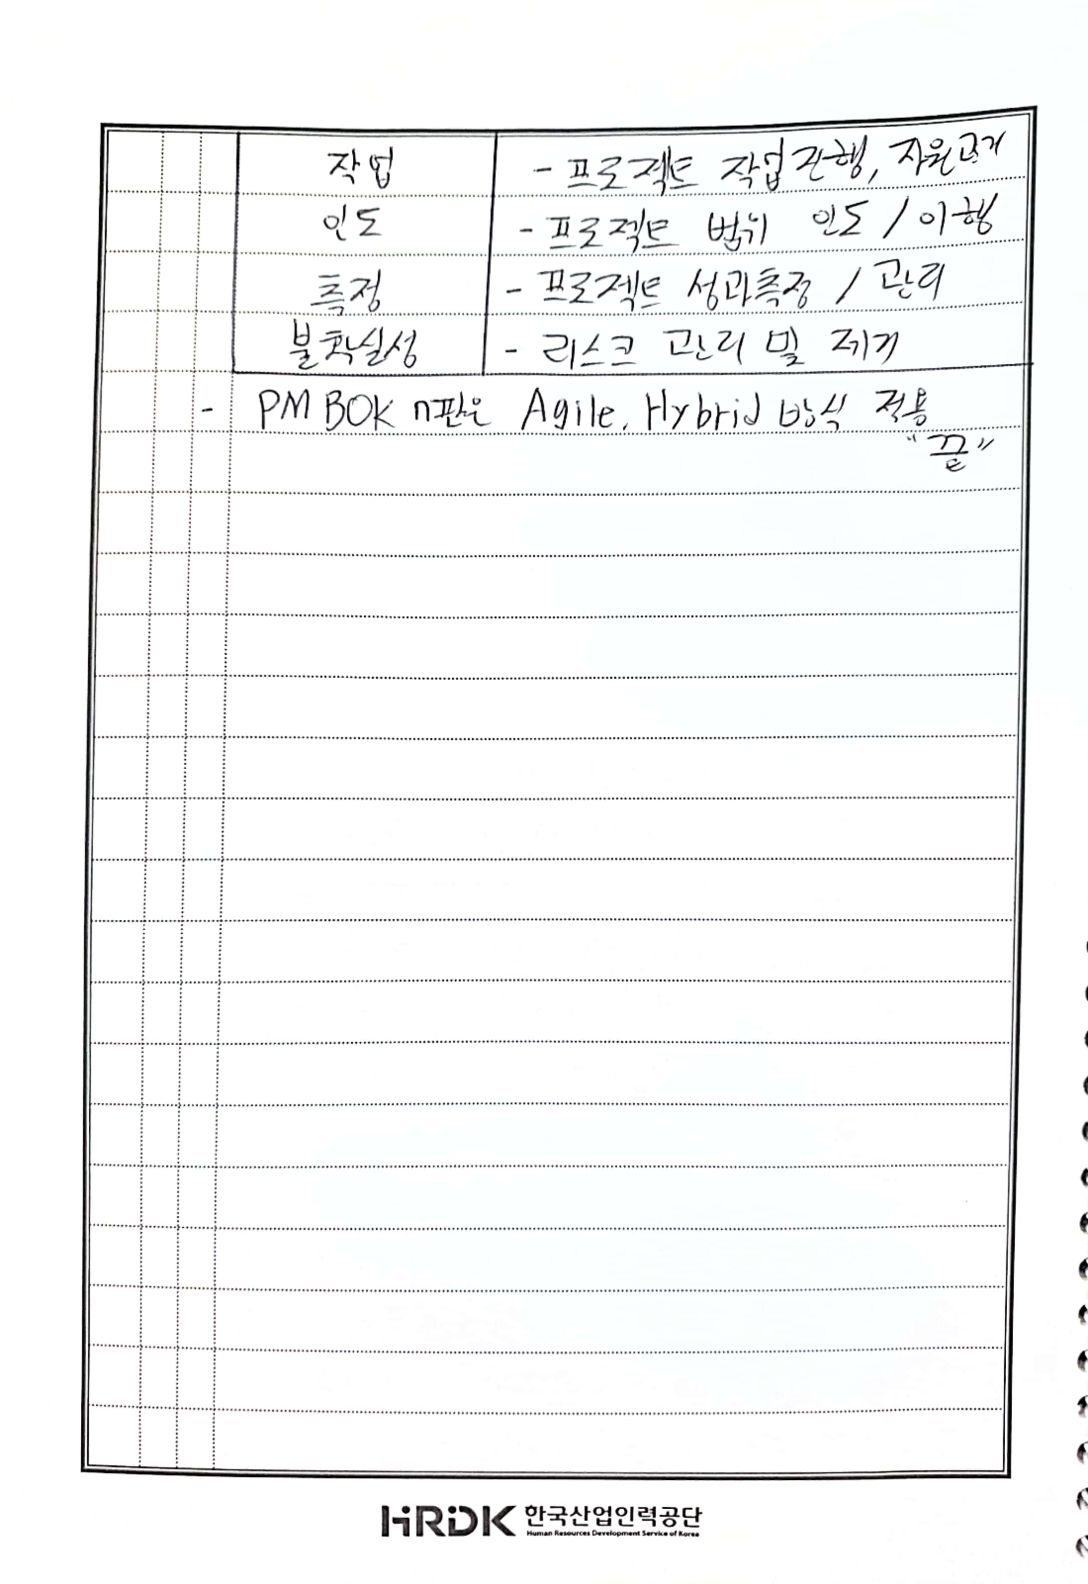 작업 - 프로젝트 작업 진행, 자원관리
인도 - 프로젝트 범위 인도 / 이행
측정 - 프로젝트 성과측정 / 관리
불확실성 - 리스크 관리 및 제거
- PMBOK 7판은 Agile, Hybrid 방식 적용
"끝"
HRDK 한국산업인력공단
Human Resources Development Service of Korea